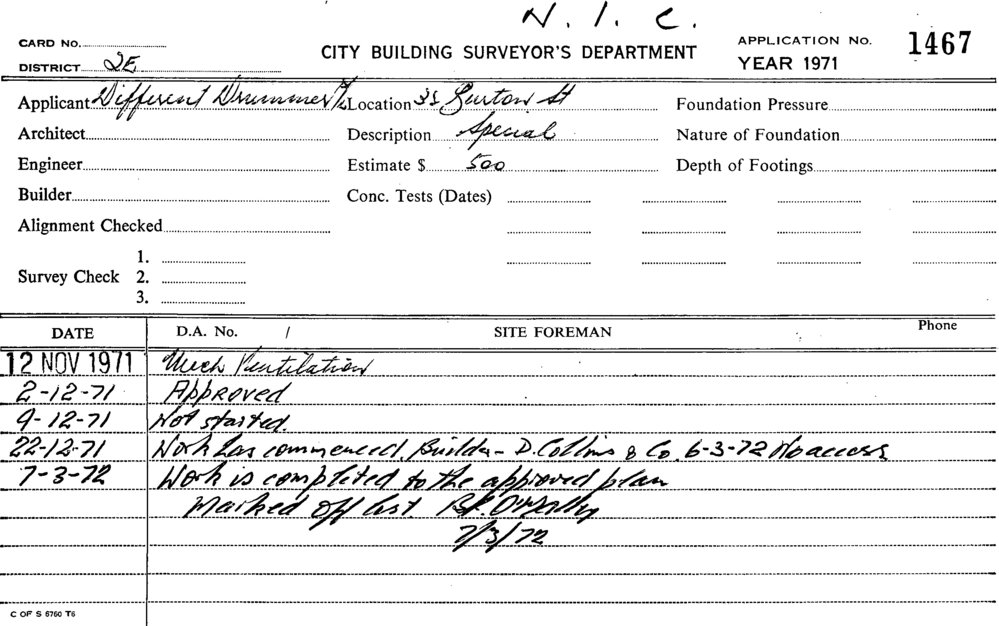 N. I. C.
CARD No.
DISTRICT 2E
CITY BUILDING SURVEYOR'S DEPARTMENT
APPLICATION No. 1467
YEAR 1971
Applicant Different Drummer P/L Location 35 Burton St Foundation Pressure
Architect Description Special Nature of Foundation
Engineer Estimate $ 500 Depth of Footings
Builder Conc. Tests (Dates)
Alignment Checked
1.
Survey Check 2.
3.
DATE D.A. No. / SITE FOREMAN Phone
12 NOV 1971 Mech Ventilation
2-12-71 Approved
9-12-71 Not started.
22-12-71 Work has commenced. Builder - D. Collins & Co. 6-3-72 No access
7-3-72 Work is completed to the approved plan
Marked off list
7/3/72
C OF S 5760 T6